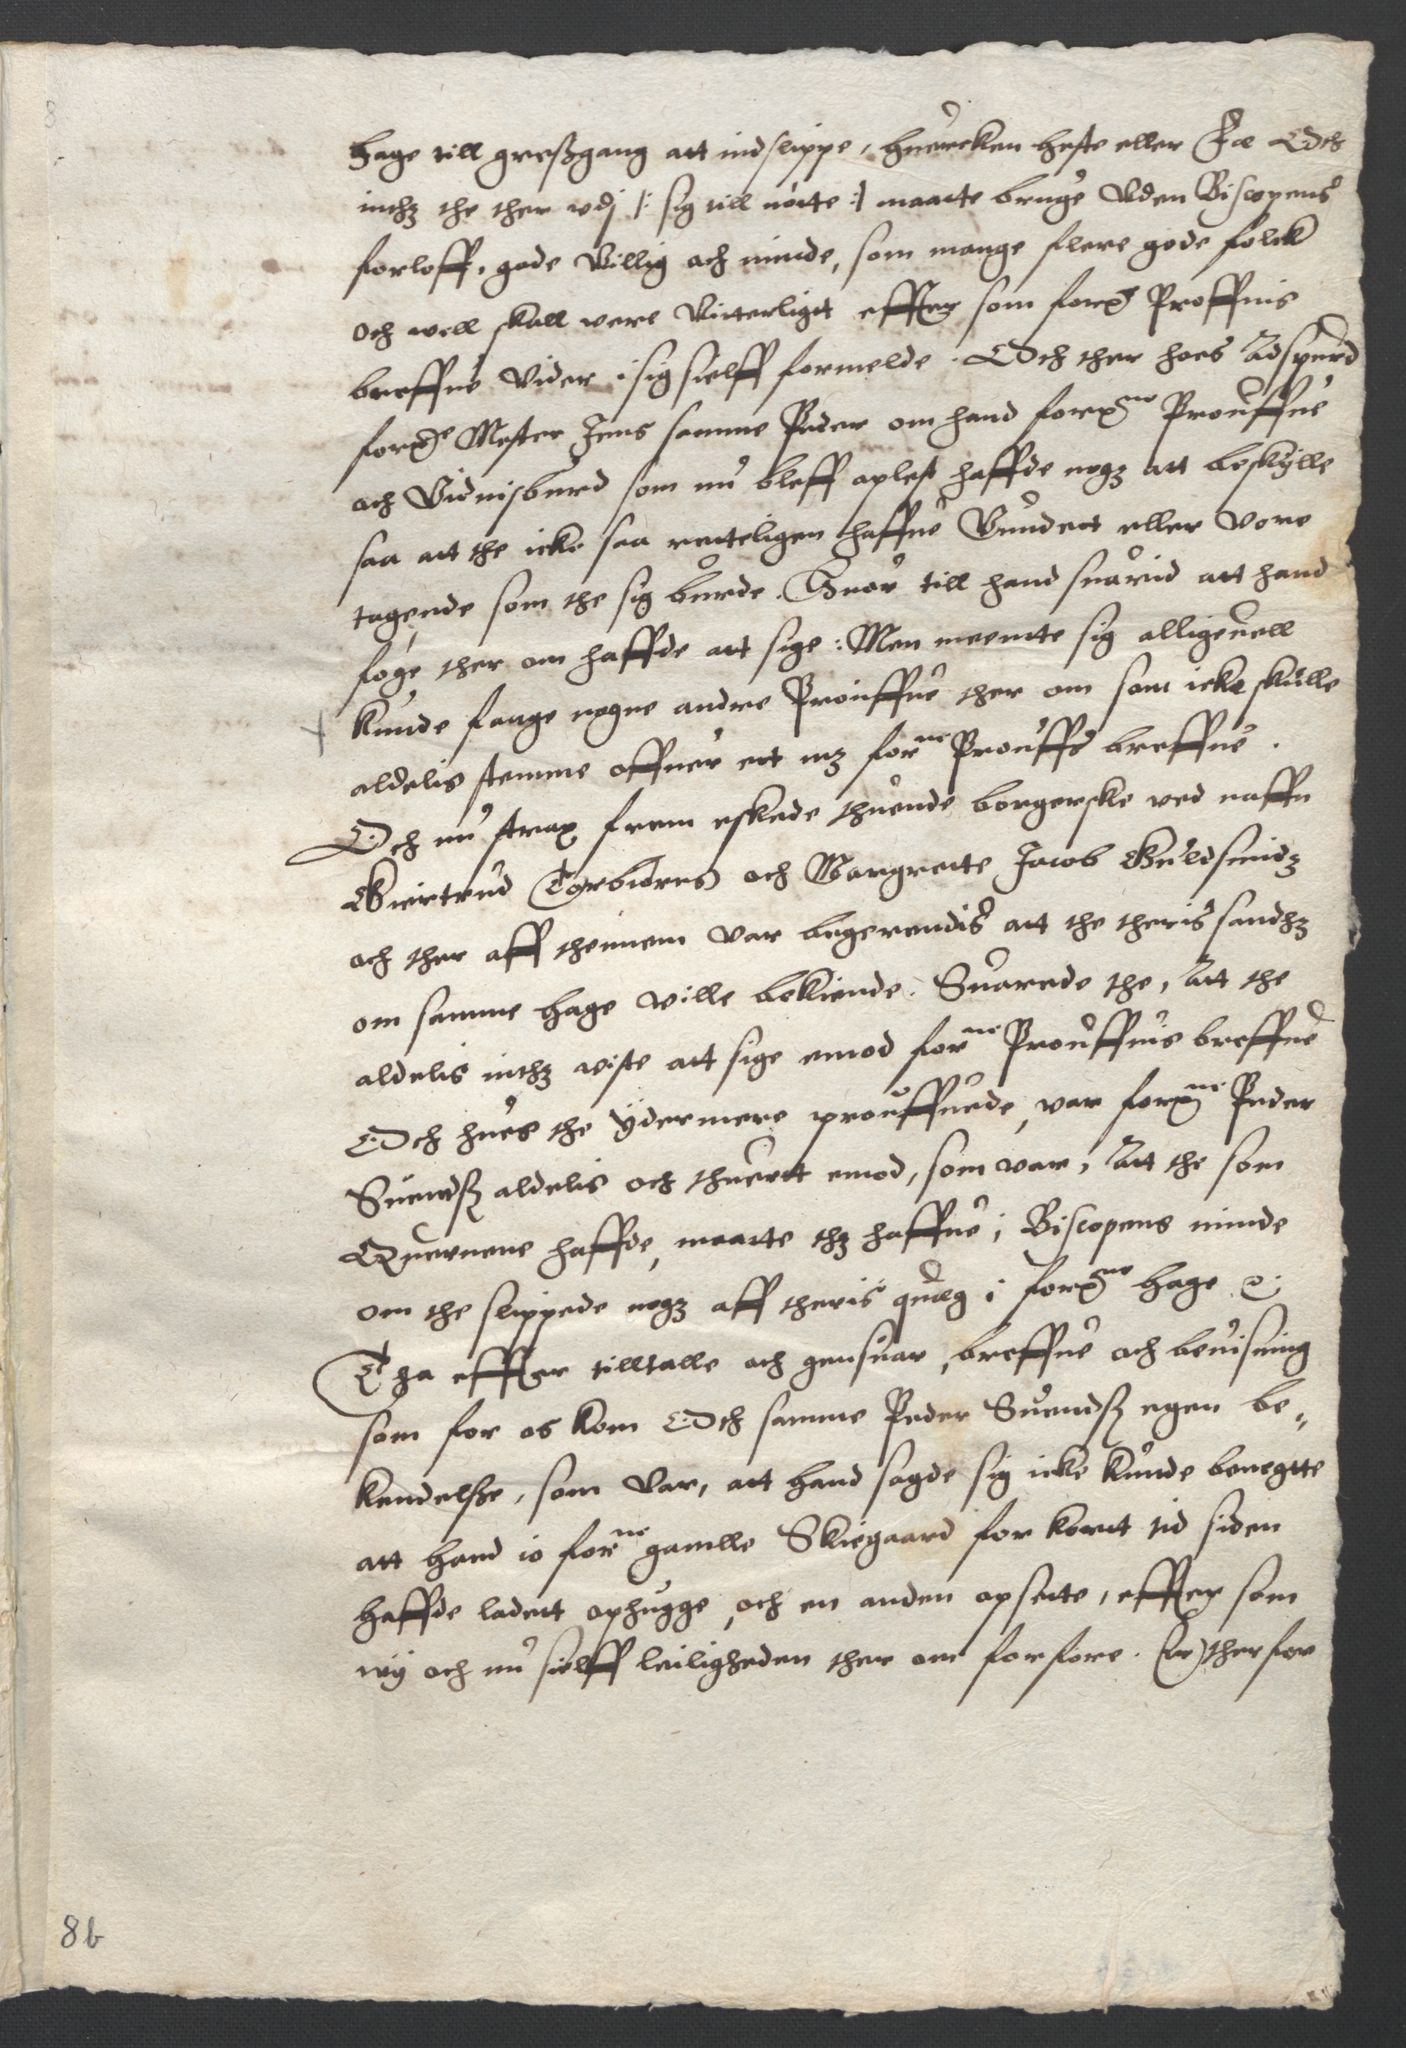 hage till greßgang att indslippe, huercken heste eller Fæ Och
inthz the ther vdj /: sig till nötte :/ maatte bruge Vden Biscopens
forloff, gode Villig och minde, som mange flere gode folck
och well skall vere Vitterligt effter som forx. Prouffuis
breffue Vider i sig sielff formelde. Och ther hoes Adspurd
forx.ne Mester Jens samme Peder om hand forx.ne Prouffue
och Vidnisburd som nu bleff oplest haffde nogz att beskylle
saa att the icke saa retteligen haffue Vundett eller vore
tagende som the sig burde. Huor till hand suarid att hand
foge ther om haffde att sige: Men meente sig alligeuell
kunde fange nogne andre Prouffue ther om som icke skulle
aldelis stemme offuer ett mz forne Prouffs breffue.
Och nu strax frem eskede thuende borgerske ved naffn
Giertrud Torbiörns och Margrette Jacob Guldsmidz
och ther aff thennem var begerendis att the theris sandhz
om samme hage ville bekiende. Suarede the, Att the
aldelis inthz viste att sige emod forne Prouffuis breffue
Och hues the ydermere prouffuede, var forx.ne Peder
Suendsz aldelis och thuertt emod, som var, Att the som
Quernene haffde, maatte thz haffue i Biscopens minde
om the slippede nogz aff theris queg i forx.ne hage etc.
Tha effter tilltalle och gensuar, breffue och beuisning
som for os kom Och samme Peder Suendsz egen be„
kendelsse, som var, att hand sagde sig icke kunde benegtte
att hand io forne gamlle Skiegaard for kortt tid siden
haffde ladett ophugge, och en anden opsette, effter som
wy och nu sielff leiligheden ther om forfore. ther for
8b